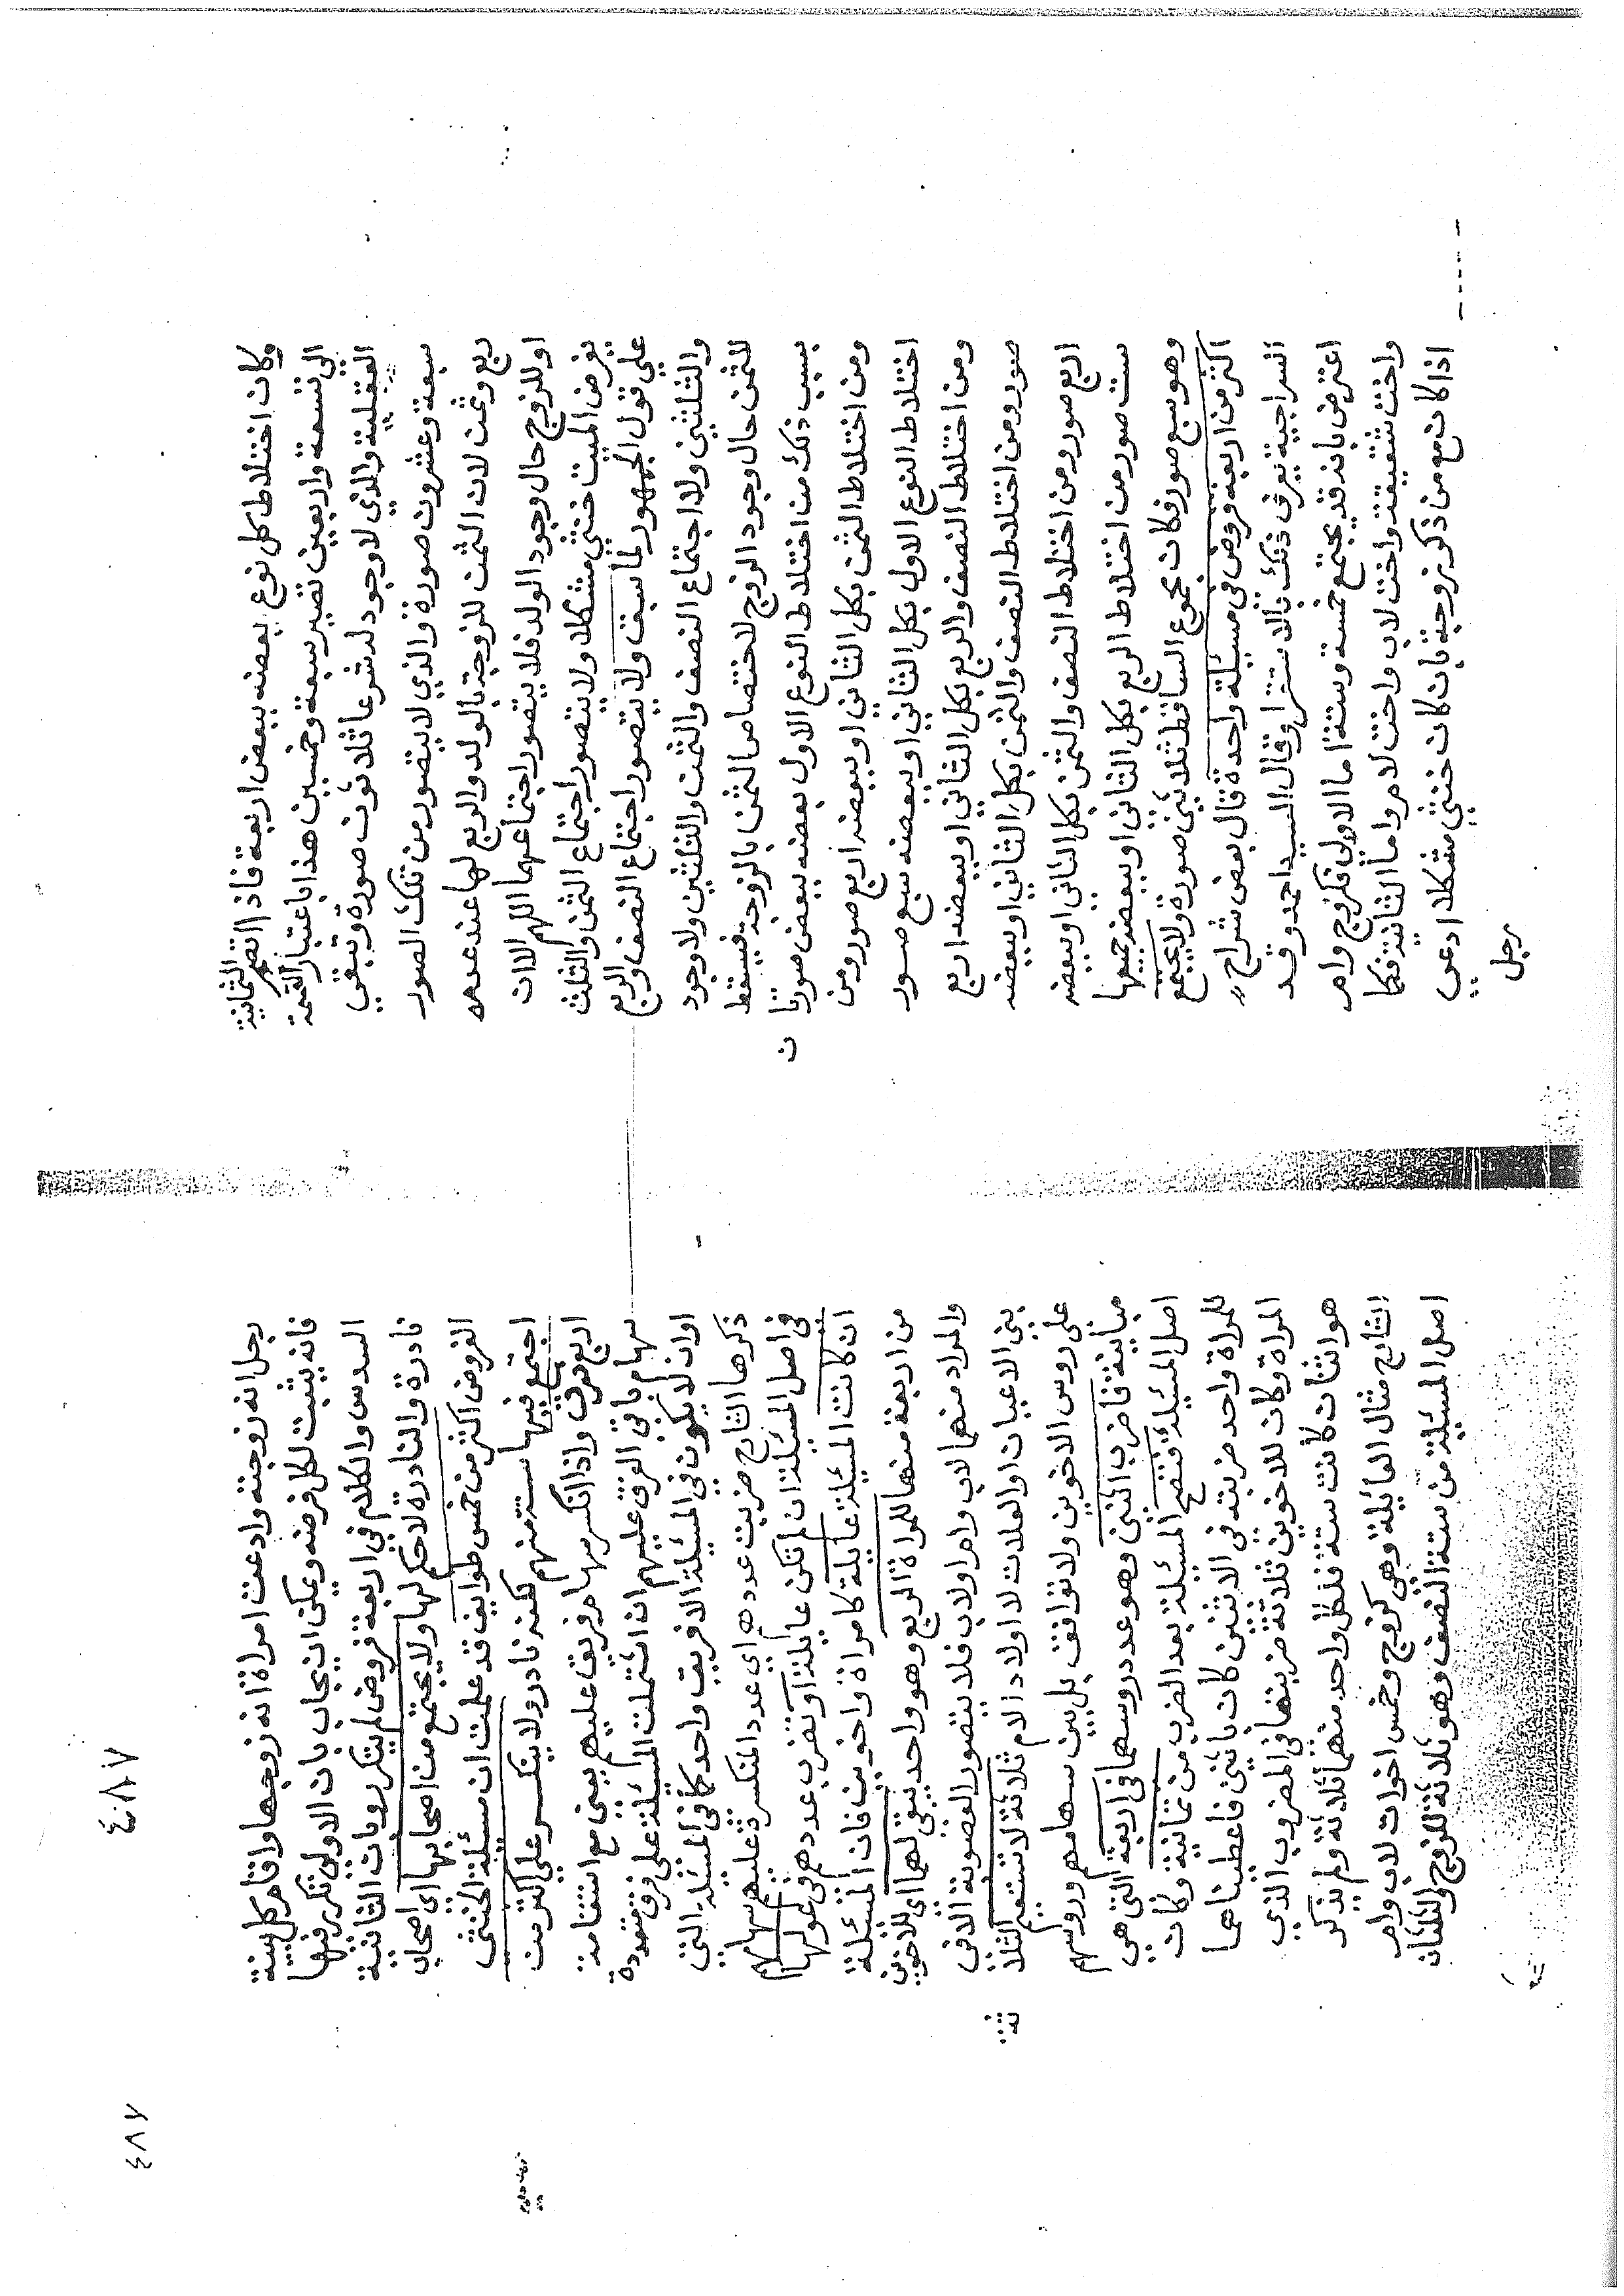 وكان اختلاط كل نوع بعضه ببعض اربعة فاذا انضم الثمانية
الى تسعة واربعين تصير سبعة وخمسين هذا باعتبار القسمة
العقلية والذي لا وجود له شرعا ثلاثون صورة ويبقي
سبعة وعشرون صورة والذي لا يتصور من تلك الصور
ربع وثمن لان الثمن للزوجة بالولد والربع لها عند عدمه
او للزوج حال وجود الولد فلا يتصور اجتماعهما اللهم الا ان
يفرض الميت خنثى مشكلا ولا يتصور اجتماع الثمن والثلث
على قول الجمهور لما سبق ولا يتصور اجتماع النصف والربع
والثلثين ولا اجتماع النصف والثمن والثلثين ولا وجود
للثمن حال وجود الزوج لاختصاص الثمن بالزوجة فيسقط
بسبب ذلك من اختلاط النوع الاول بعضه ببعض صورتا
ن
ومن اختلاط الثمن بكل الثاني او ببعضه اربع صور ومن
اختلاط النوع الاول بكل الثاني او ببعضه سبع صور
ومن اختلاط النصف والربع بكل الثاني او ببعضه اربع
صور ومن اختلاط النصف والثمن بكل الثاني او ببعضه
اربع صور ومن اختلاط النصف والثمن بكل الثاني او ببعضه
ست صور من اختلاط الربع بكل الثاني او ببعضه جميعها
وهو سبع صور فكان مجموع الساقط ثلاثين صورة ولا يجتمع
اكثر من اربعة فروض في مسئلة واحدة قال بعض شراح
السراجية يعرف ذلك بالاستقرا وقال السيد احمد وقد
اعترض بانه قد يجتمع خمسة وستة اما الاولى فكزوج وام
واخت شقيقة واخت لاب واخت لام واما الثانية فكما
اذا كان مع من ذكر زوجة بان كان خنثى مشكلا ادعى
رجل
رجل انه زوجته وادعت امراة انه زوجها واقام كل بينة
فانه يثبت لكل فرضه ويمكن ان يجاب بان الاولى تكرر فيها
السدس والكلام في اربعة فروض لم يتكرر وبان الثانية
نادرة والنادرة لا حكم لها ولا يجتمع من اصحابها اي اصحاب
الفروض اكثر من خمس طوايف قد علمت ان مسئلة الخنثى
اجتمع فيها ستة منهم لكنه نادر ولا ينكسر على اكثر من
اربع فرق واذا انكسر سهام فريق عليهم يبني مع استقامة
سهام باقي الفرق عليهم ان اشتملت المسئلة على فرق متعددة
او ان لا يكون في المسئلة الا فريق واحد كما في المسئلة التي
ذكرها الشارح ضربت عددهم اي عدد المنكسرة عليهم سهامهم
في اصل المسئلة ان لم تكن عايلة او تضرب عددهم في عولها
ان كانت المسئلة عايلة كامراة واخوين فان المسئلة
من اربعة منها للمراة الربع وهو واحد يبقى لهما اي للاخوين
والمراد منهما لاب وام او لاب فلا يتصور العصوبة الا في
بني الاعيان او العلات لا اولاد الام ثلاثة لا تستقيم الثلا
ثة
على روس الاخوين ولا توافق بل بين سهامهم وروسهم
مباينة فاضرب اثنين وهو عدد روسهما في اربعة التي هي
اصل المسئلة فتصح المسئلة بعد الضرب من ثمانية وكان
للمراة واحد ضربته في الاثنين كان باثنين فاعطيناهما
المراة وكان للاخوين ثلاثة ضربتها في المضروب الذي
هو اثنان كانت ستة فلكل واحد منهما ثلاثة ولم يذكر
الشارح مثال العائلة وهي كزوج وخمس اخوات لاب وام
اصل المسئلة من ستة النصف وهو ثلاثة للزوج والثلثان
٤٨٧
٤٨٧